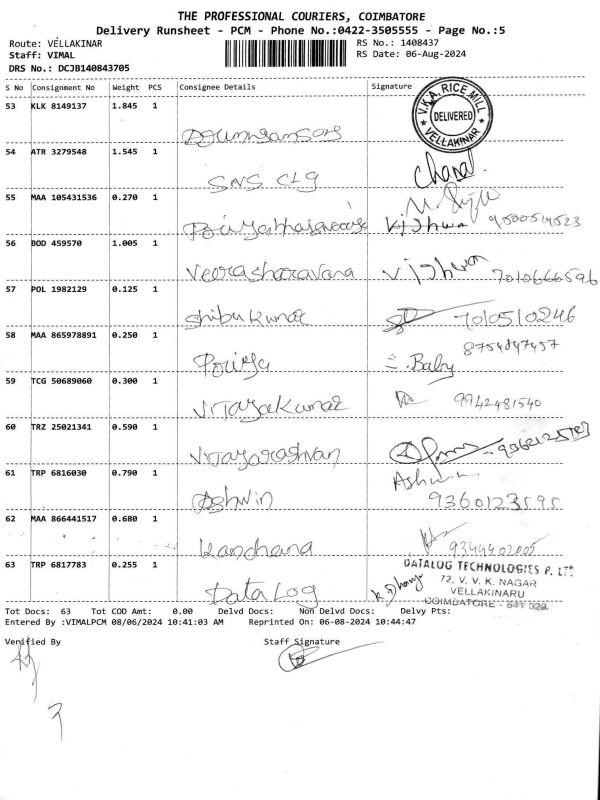 THE PROFESSIONAL COURIERS, COIMBATORE
Delivery Runsheet - PCM - Phone No.:0422-3505555 - Page No.:5
Route: VELLAKINAR RS No.: 1408437
Staff: VIMAL RS Date: 06-Aug-2024
DRS No.: DCJB140843705
S No Consignment No Weight PCS Consignee Details Signature
53 KLK 8149137 1.845 1
V.K.A. RICE MILL
DELIVERED
VELLAKINAR
54 ATR 3279548 1.545 1
SNS Clg
55 MAA 105431536 0.270 1
Vishwa 9500514523
56 BOD 459570 1.005 1
Veerasharavana Vishwa 7010666596
57 POL 1982129 0.125 1
Shibu Kumar 7010510246
58 MAA 865978891 0.250 1
Poiuja Baby 8754847457
59 TCG 50689060 0.300 1
Vijayakumar 9942481540
60 TRZ 25021341 0.590 1
Vijayaraghvan
61 TRP 6816030 0.790 1
Ashwin Ashwin
9360123595
62 MAA 866441517 0.680 1
Kanchana
63 TRP 6817783 0.255 1
Data Log K. Dhanya
DATALOG TECHNOLOGIES P. LTD
72, V. V. K. NAGAR
VELLAKINARU
COIMBATORE - 641 029
Tot Docs: 63 Tot COD Amt: 0.00 Delvd Docs: Non Delvd Docs: Delvy Pts:
Entered By :VIMALPCM 08/06/2024 10:41:03 AM Reprinted On: 06-08-2024 10:44:47
Verified By Staff Signature